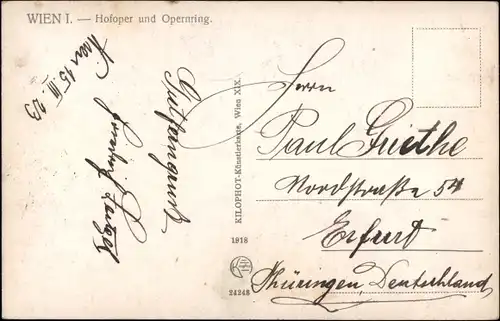 WIEN I. — Hofoper und Opernring.
Wien 15. III 23
KILOPHOT-Künstlerkarte, Wien XIX.
1918
24248
Herrn
Paul Guthe
Nordstraße 54
Erfurt
Thüringen, Deutschland